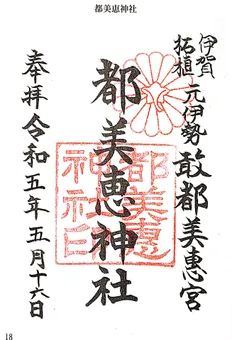 都美恵神社
伊賀
柘植
元伊勢 敢都美恵宮
都美恵神社
奉拝 令和五年五月十六日
18